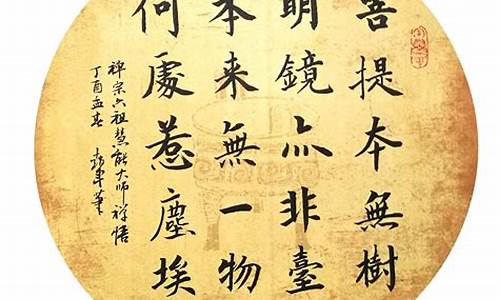 菩提本無樹
明鏡亦非臺
本来無一物
何處惹塵埃
禅宗六祖慧能大师禅悟
丁酉孟春